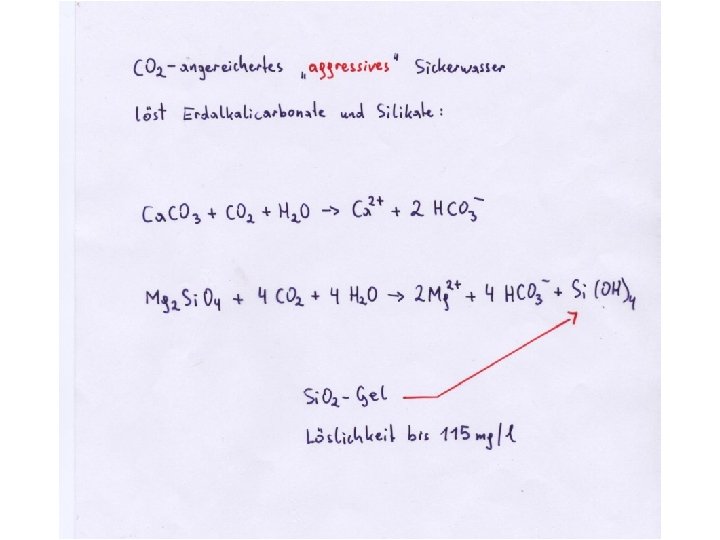 CO₂-angereichertes „aggressives“ Sickerwasser
löst Erdalkalicarbonate und Silikate:
CaCO₃ + CO₂ + H₂O → Ca²⁺ + 2 HCO₃⁻
Mg₂SiO₄ + 4 CO₂ + 4 H₂O → 2 Mg²⁺ + 4 HCO₃⁻ + Si(OH)₄
SiO₂-Gel
Löslichkeit bis 115 mg/l